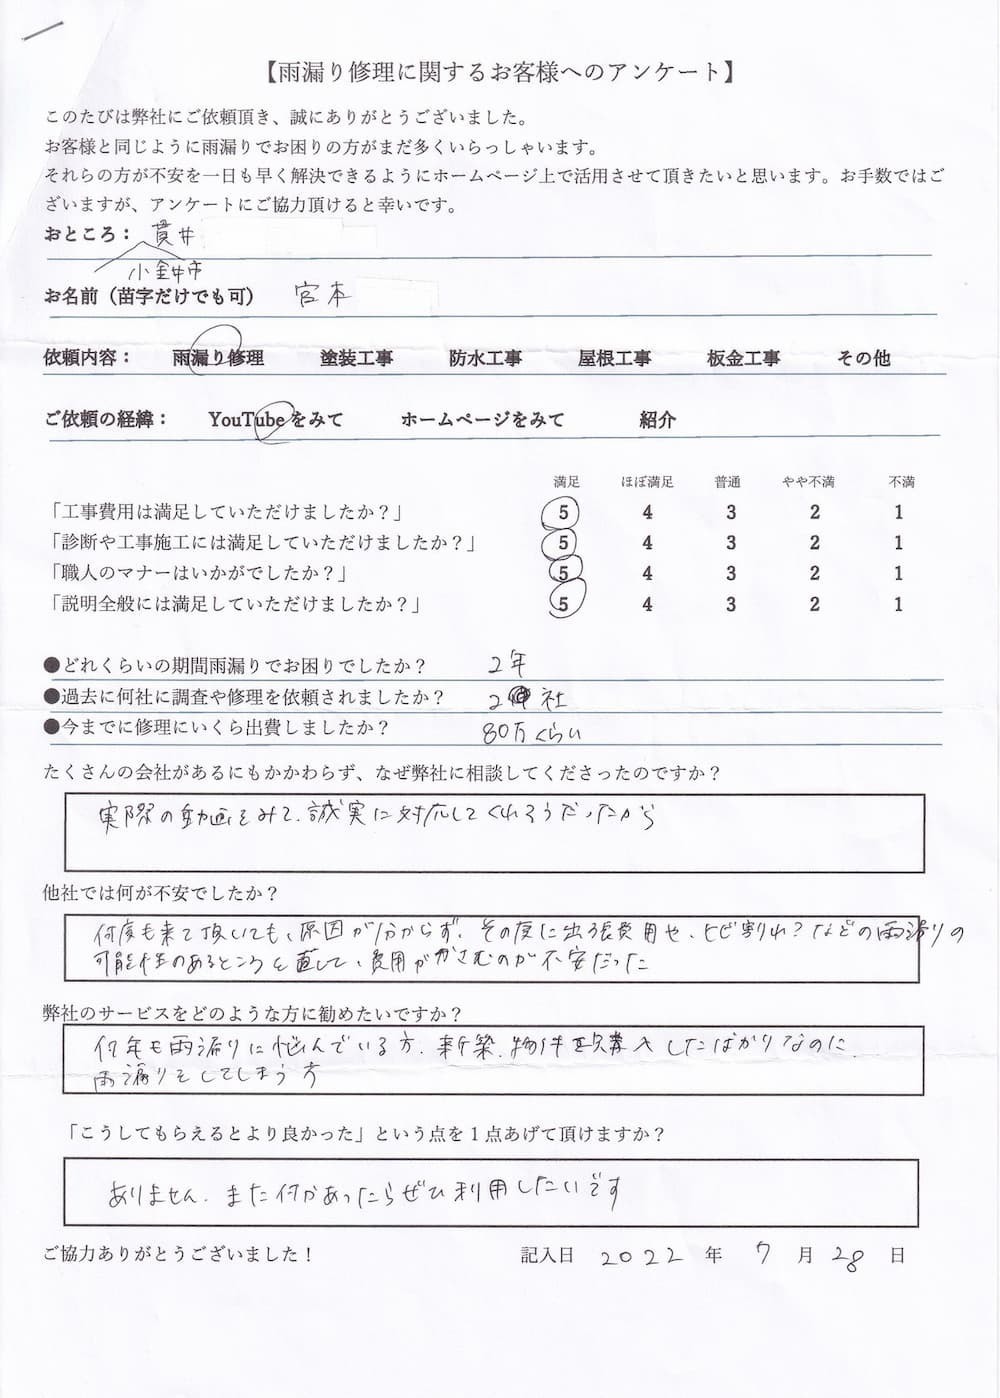 【雨漏り修理に関するお客様へのアンケート】
このたびは弊社にご依頼頂き、誠にありがとうございました。
お客様と同じように雨漏りでお困りの方がまだ多くいらっしゃいます。
それらの方が不安を一日も早く解決できるようにホームページ上で活用させて頂きたいと思います。お手数ではご
ざいますが、アンケートにご協力頂けると幸いです。
おところ： 貫井
小金井市
お名前（苗字だけでも可） 宮本
依頼内容： 雨漏り修理 塗装工事 防水工事 屋根工事 板金工事 その他
ご依頼の経緯： YouTubeをみて ホームページをみて 紹介
満足 ほぼ満足 普通 やや不満 不満
「工事費用は満足していただけましたか？」 5 4 3 2 1
「診断や工事施工には満足していただけましたか？」 5 4 3 2 1
「職人のマナーはいかがでしたか？」 5 4 3 2 1
「説明全般には満足していただけましたか？」 5 4 3 2 1
●どれくらいの期間雨漏りでお困りでしたか？ 2年
●過去に何社に調査や修理を依頼されましたか？ 2社
●今までに修理にいくら出費しましたか？ 80万くらい
たくさんの会社があるにもかかわらず、なぜ弊社に相談してくださったのですか？
実際の動画をみて、誠実に対応してくれそうだったから
他社では何が不安でしたか？
何度も来て頂いても、原因が分からず、その度に出張費用や、ヒビ割れ？などの雨漏りの
可能性のあるところを直して、費用がかさむのが不安だった
弊社のサービスをどのような方に勧めたいですか？
何年も雨漏りに悩んでいる方、新築、物件を購入したばかりなのに、
雨漏りをしてしまう方
「こうしてもらえるとより良かった」という点を１点あげて頂けますか？
ありません、また何かあったらぜひ利用したいです
ご協力ありがとうございました！ 記入日 2022 年 7 月 28 日